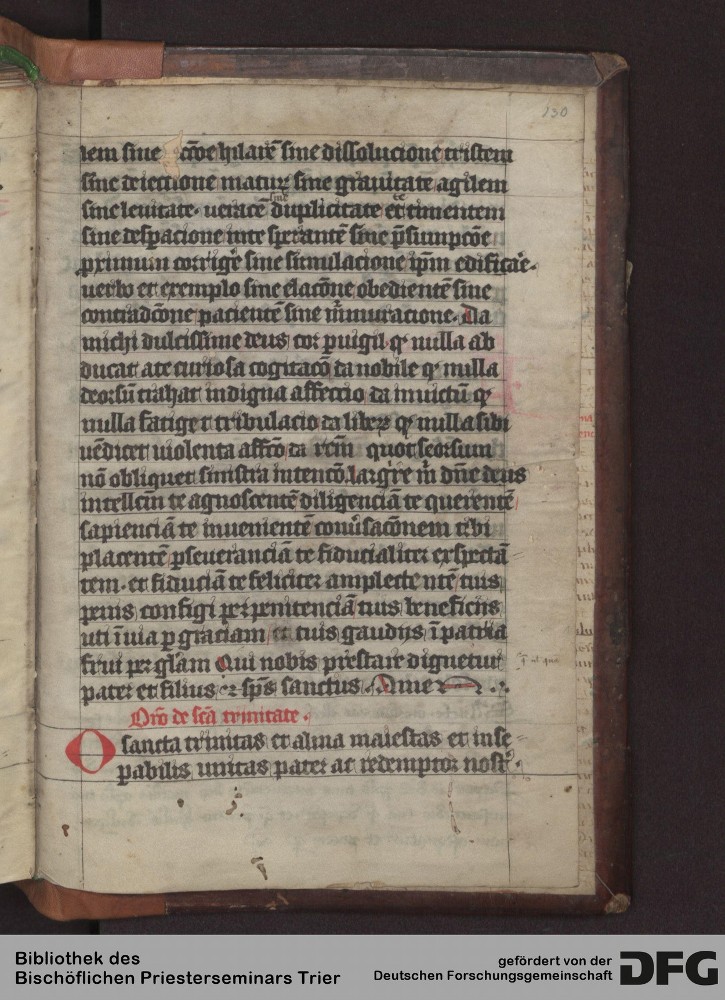 130
lem sine cc̄oe hilarē sine dissolucione tristem
sine deiectione maturū sine grauitate agilem
sine leuitate. ueracē sine duplicitate et te timentem
sine despacione in te sperantē sine p̄sumpcōe
pximum corrige͛ sine simulacione ip̄m edifica͛e.
uerbo et exemplo sine elacōne obedientē sine
contradcōne pacientē sine m̄muracione. Da
michi dulcissime deus cor puigil q nulla ab
ducat a te curiosa cogitacō da nobile q nulla
deorsū trahat indigna affeccio da inuictū q
nulla fatiget tribulacio da liberū q nulla sibi
uēdicet uiolenta affc̄o da rc̄m quot seorsum
nō obliquet sinistra intencō largire m̄ dn̄e deus
intellcm̄ te agnoscentē diligenciā te querentē
sapienciā te inuenientē conu͛sacōnem tibi
placentē pseueranciā te fiducialiter exspectā
tem. et fiduciā te feliciter amplectentē tuis
penis configi per penitenciā tuis beneficijs
uti ī uia p graciam et tuis gaudijs ī patria
frui per gl̄am Qui nobis prestare dignetur
pater et filius et sp̄s sanctus. Amen
Orō de scā trinitate.
O sancta trinitas et alma maiestas et inse
pabilis unitas pater ac redemptor nost͛.
Bibliothek des
Bischöflichen Priesterseminars Trier
gefördert von der
Deutschen Forschungsgemeinschaft
DFG